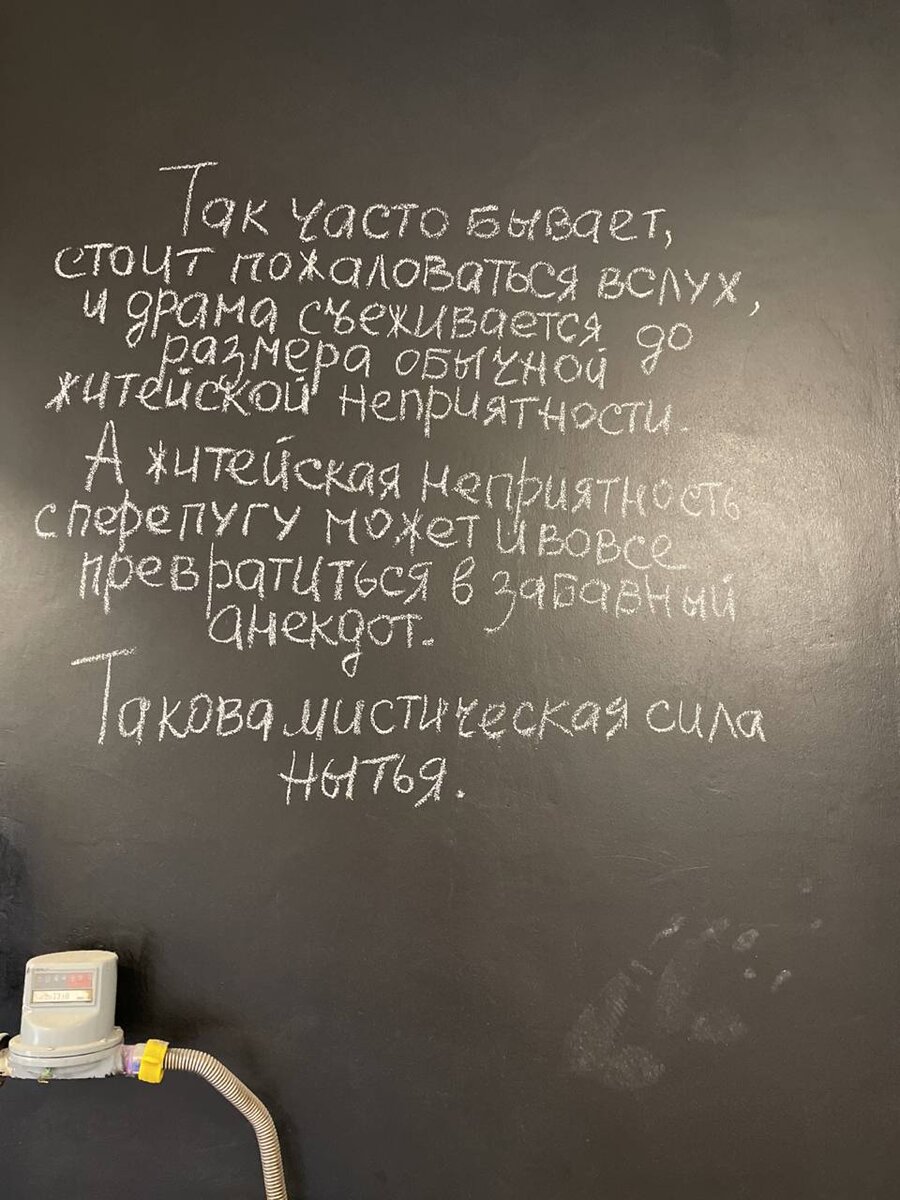 Так часто бывает,
стоит пожаловаться вслух,
и драма съеживается до
размера обычной
житейской неприятности.
А житейская неприятность
с перепугу может и вовсе
превратиться в забавный
анекдот.
Такова мистическая сила
нытья.